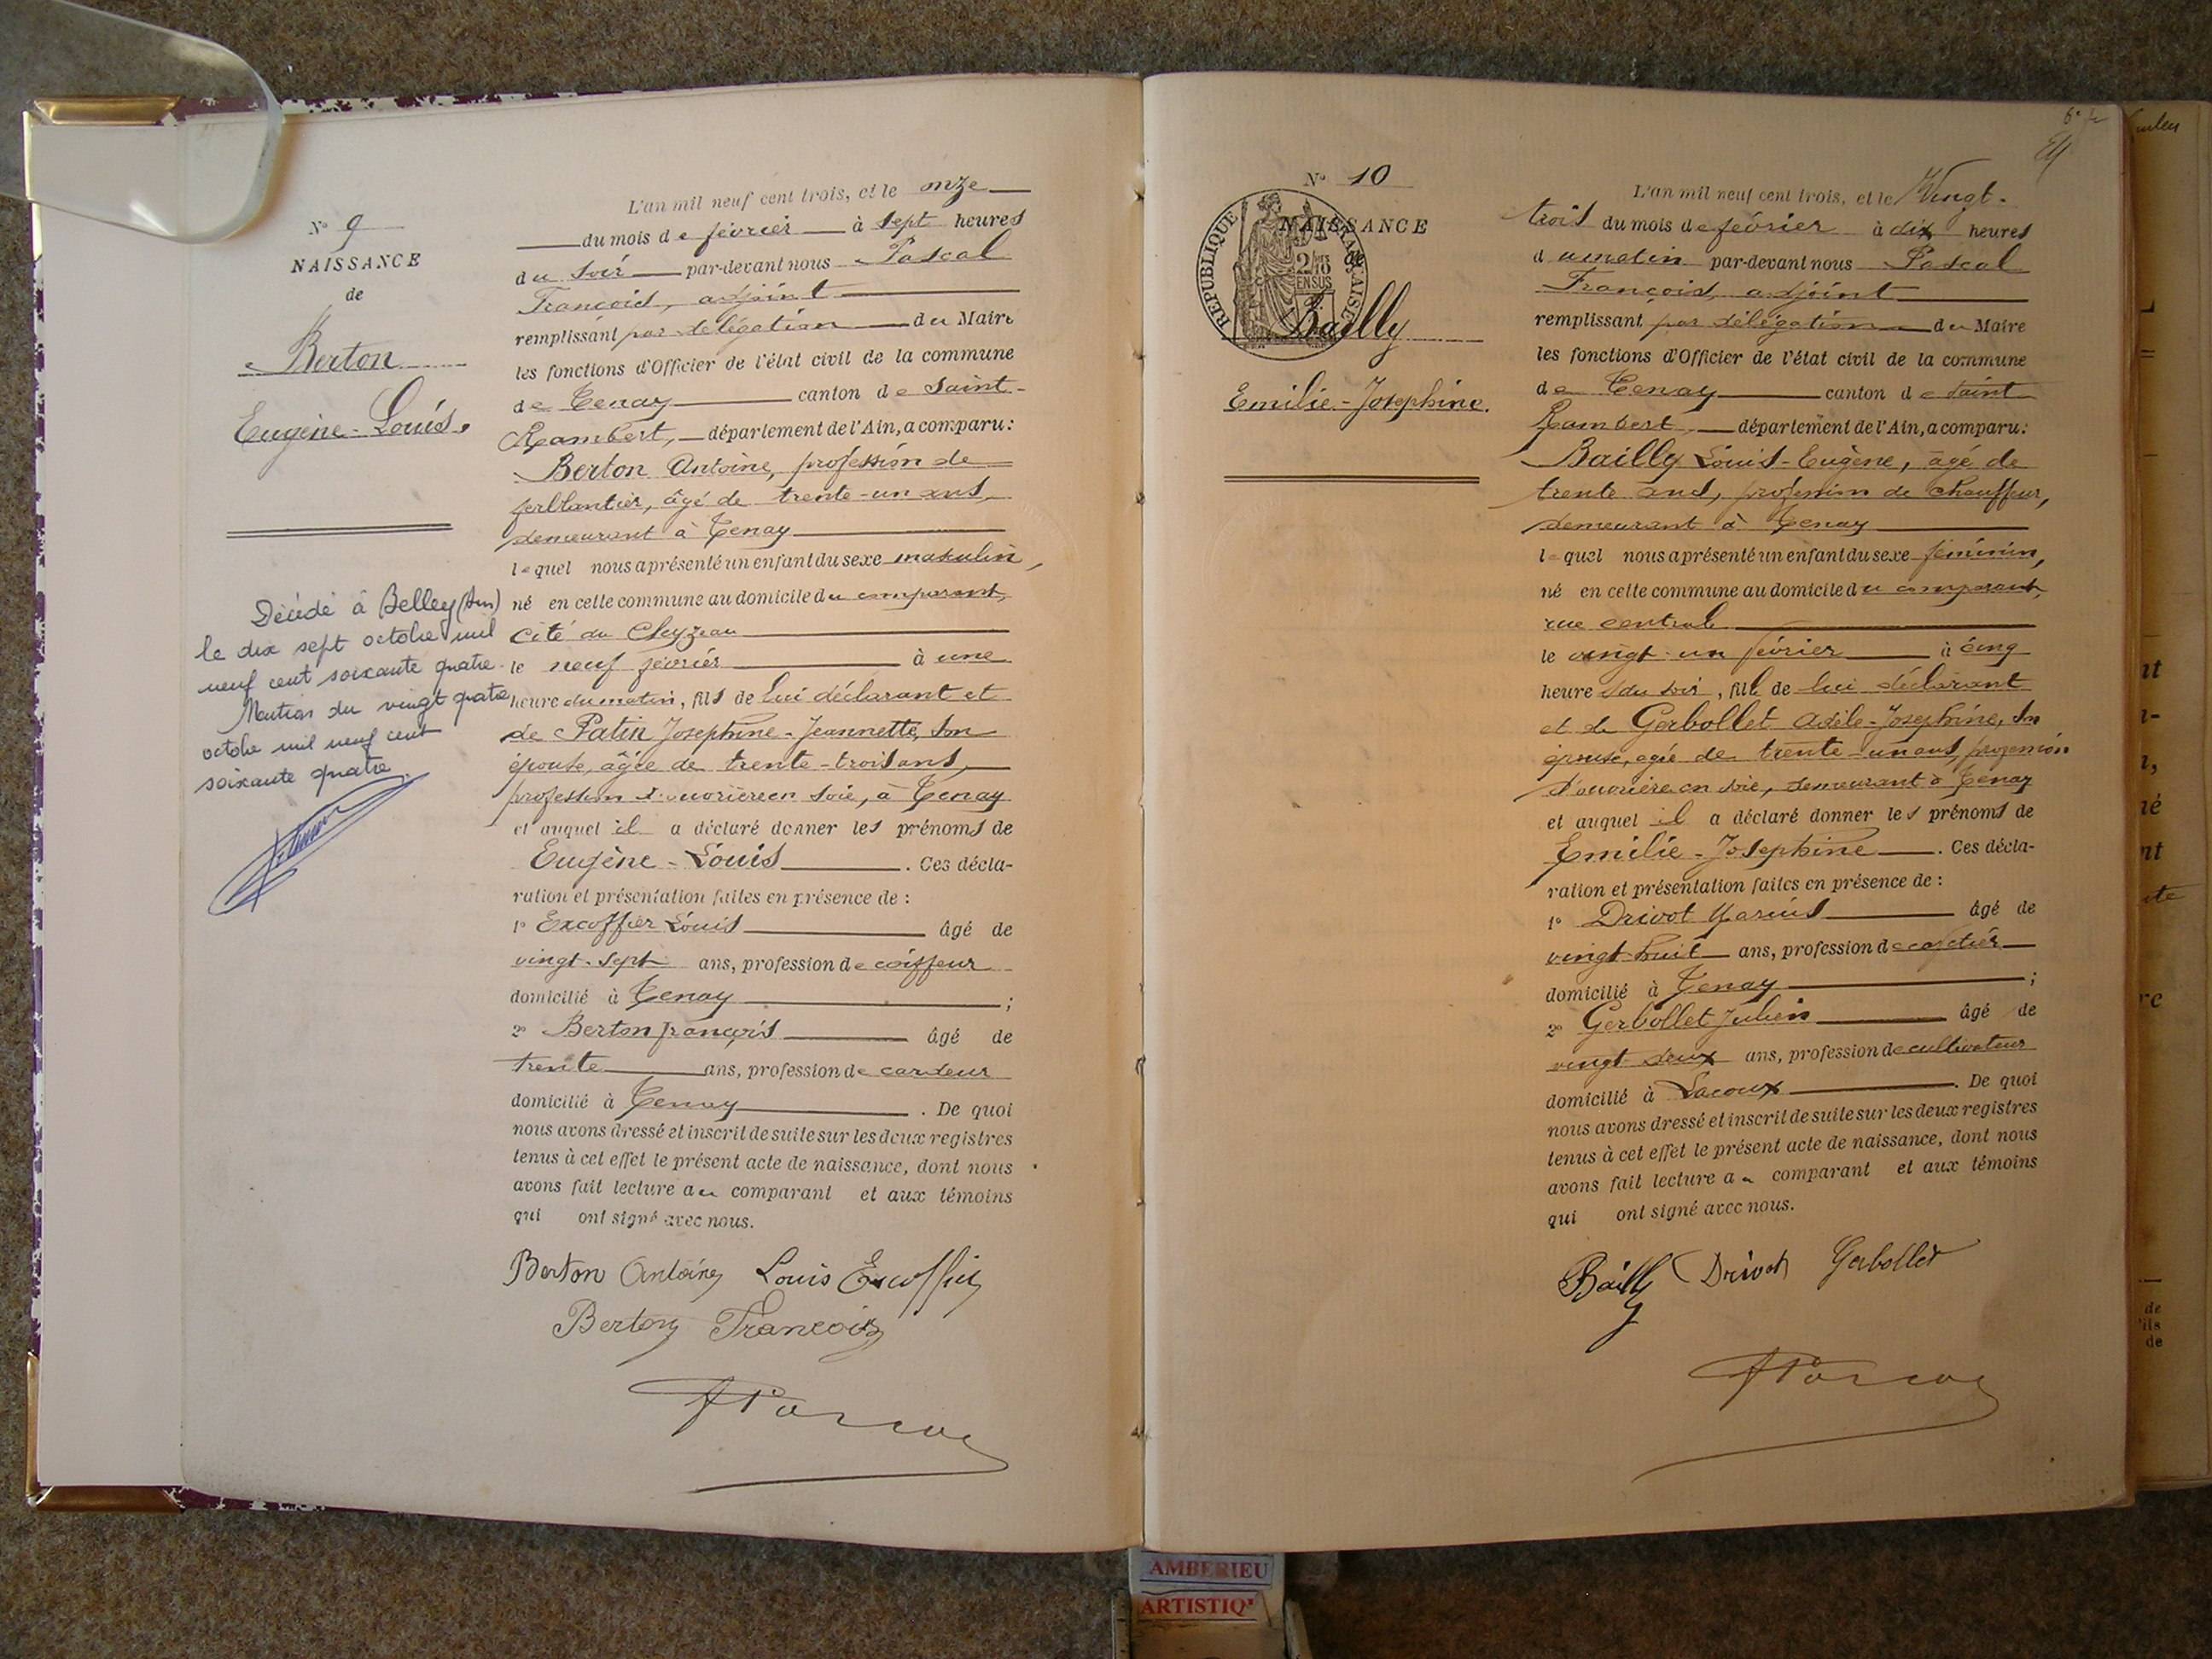 N° 9
NAISSANCE
de
Berton
Eugène-Louis.
Décédé à Belley (Ain)
le dix sept octobre mil
neuf cent soixante quatre.
Mention du vingt quatre
octobre mil neuf cent
soixante quatre.
L'an mil neuf cent trois, et le onze
du mois de février à sept heures
du soir par-devant nous Pascal
François, adjoint
remplissant par délégation du Maire
les fonctions d'Officier de l'état civil de la commune
de Tenay canton de Saint-
Rambert, département de l'Ain, a comparu:
Berton Antoine, profession de
ferblantier, âgé de trente-un ans,
demeurant à Tenay
lequel nous a présenté un enfant du sexe masculin,
né en cette commune au domicile du comparant,
cité du Cleyzeau
le neuf février à une
heure du matin, fils de lui déclarant et
de Patin Josephine-Jeannette, son
épouse, âgée de trente-trois ans,
profession d'ouvrière en soie, à Tenay
et auquel il a déclaré donner les prénoms de
Eugène-Louis. Ces décla-
ration et présentation faites en présence de :
1° Excoffier Louis âgé de
vingt-sept ans, profession de coiffeur
domicilié à Tenay ;
2° Berton françois âgé de
trente ans, profession de cardeur
domicilié à Tenay. De quoi
nous avons dressé et inscrit de suite sur les deux registres
tenus à cet effet le présent acte de naissance, dont nous
avons fait lecture au comparant et aux témoins
qui ont signé avec nous.
Berton Antoine Louis Excoffier
Berton François
FPascal
N° 10
NAISSANCE
de
RÉPUBLIQUE FRANÇAISE
2/10 EN SUS
Bailly
Emilie-Josephine.
L'an mil neuf cent trois, et le Vingt-
trois du mois de février à dix heures
du matin par-devant nous Pascal
François, adjoint
remplissant par délégation du Maire
les fonctions d'Officier de l'état civil de la commune
de Tenay canton de Saint
Rambert, département de l'Ain, a comparu:
Bailly Louis-Eugène, âgé de
trente ans, profession de chauffeur,
demeurant à Tenay
lequel nous a présenté un enfant du sexe féminin,
né en cette commune au domicile du comparant,
rue centrale
le vingt-un février à cinq
heures du soir, fille de lui déclarant
et de Gerbollet Adèle-Josephine, son
épouse, agée de trente-un ans, profession
d'ouvrière en soie, demeurant à Tenay
et auquel il a déclaré donner les prénoms de
Emilie-Josephine. Ces décla-
ration et présentation faites en présence de :
1° Drivot Marius âgé de
vingt-huit ans, profession de cafetier
domicilié à Tenay ;
2° Gerbollet Julien âgé de
vingt-deux ans, profession de cultivateur
domicilié à Lacoux. De quoi
nous avons dressé et inscrit de suite sur les deux registres
tenus à cet effet le présent acte de naissance, dont nous
avons fait lecture au comparant et aux témoins
qui ont signé avec nous.
Bailly Drivot Gerbollet
FPascal
AMBERIEU
ARTISTIQ